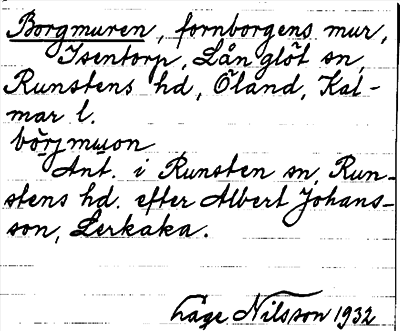 Borgmuren, fornborgens mur,
Isentorp, Långlöt sn,
Runstens hd, Öland, Kal-
mar l.
börjmuon
Ant. i Runsten sn, Run-
stens hd. efter Albert Johans-
son, Lerkaka.
Låge Nilsson 1932